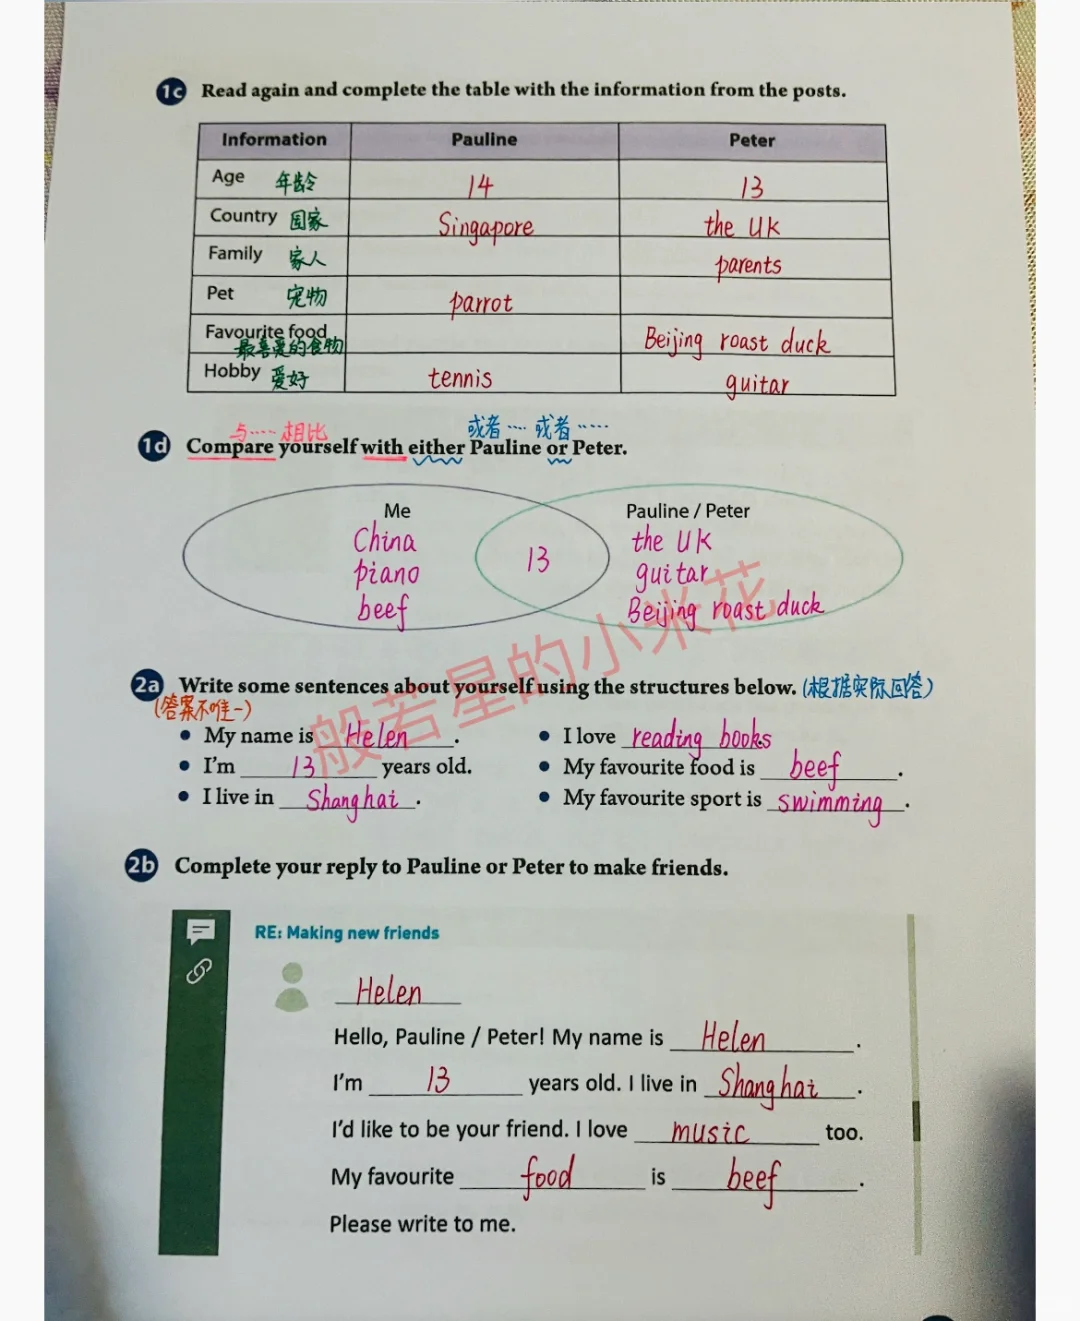 1c Read again and complete the table with the information from the posts.
Information Pauline Peter
Age 年龄 14 13
Country 国家 Singapore the UK
Family 家人 parents
Pet 宠物 parrot
Favourite food 最喜爱的食物 Beijing roast duck
Hobby 爱好 tennis guitar
与····相比 或者···· 或者·····
1d Compare yourself with either Pauline or Peter.
Me Pauline / Peter
China the UK
13
piano guitar
beef Beijing roast duck
般若星的小米花
2a Write some sentences about yourself using the structures below. (根据实际回答)
(答案不唯一)
• My name is Helen. • I love reading books
• I'm 13 years old. • My favourite food is beef.
• I live in Shanghai. • My favourite sport is swimming.
2b Complete your reply to Pauline or Peter to make friends.
RE: Making new friends
Helen
Hello, Pauline / Peter! My name is Helen.
I'm 13 years old. I live in Shanghai.
I'd like to be your friend. I love music too.
My favourite food is beef.
Please write to me.